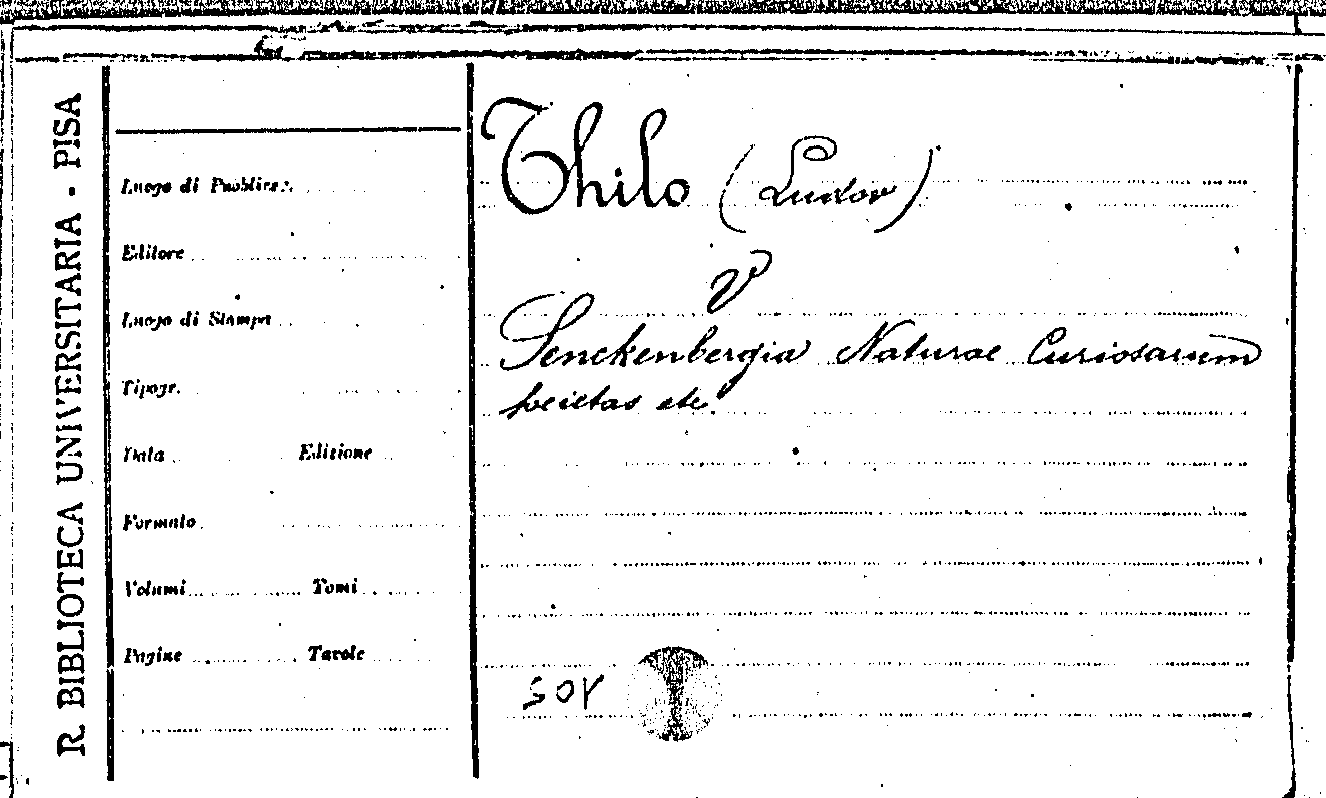 R. BIBLIOTECA UNIVERSITARIA - PISA
Luogo di Pubblicaz.
Editore
Luogo di Stampa
Tipogr.
Data Edizione
Formato
Volumi Tomi
Pagine Tavole
Thilo (Ludov)
V
Senckenbergia Naturae Curiosarum
societas etc.